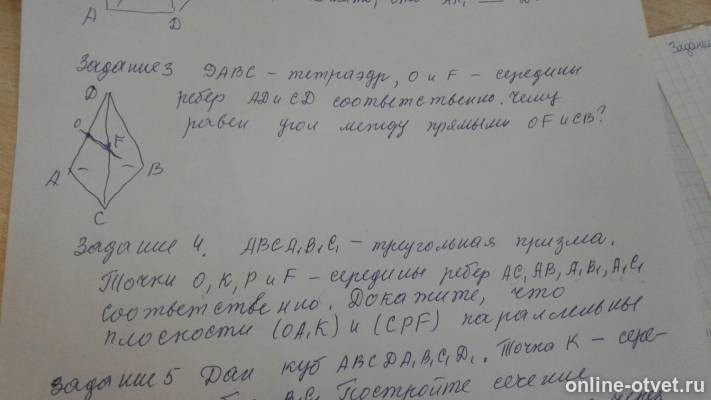 A D
Задание
Задание 3 DABC - тетраэдр, O и F - середины
ребер AD и CD соответственно. Чему
равен угол между прямыми OF и CB?
D
O
F
A
B
C
Задание 4. ABCA₁B₁C₁ - треугольная призма.
Точки O, K, P и F - середины ребер AC, AB, A₁B₁, A₁C₁
соответственно. Докажите, что
плоскости (OA₁K) и (CPF) параллельны
Задание 5 Дан куб ABCDA₁B₁C₁D₁. Точка K - сере-
B₁C₁ Постройте сечение
online-otvet.ru